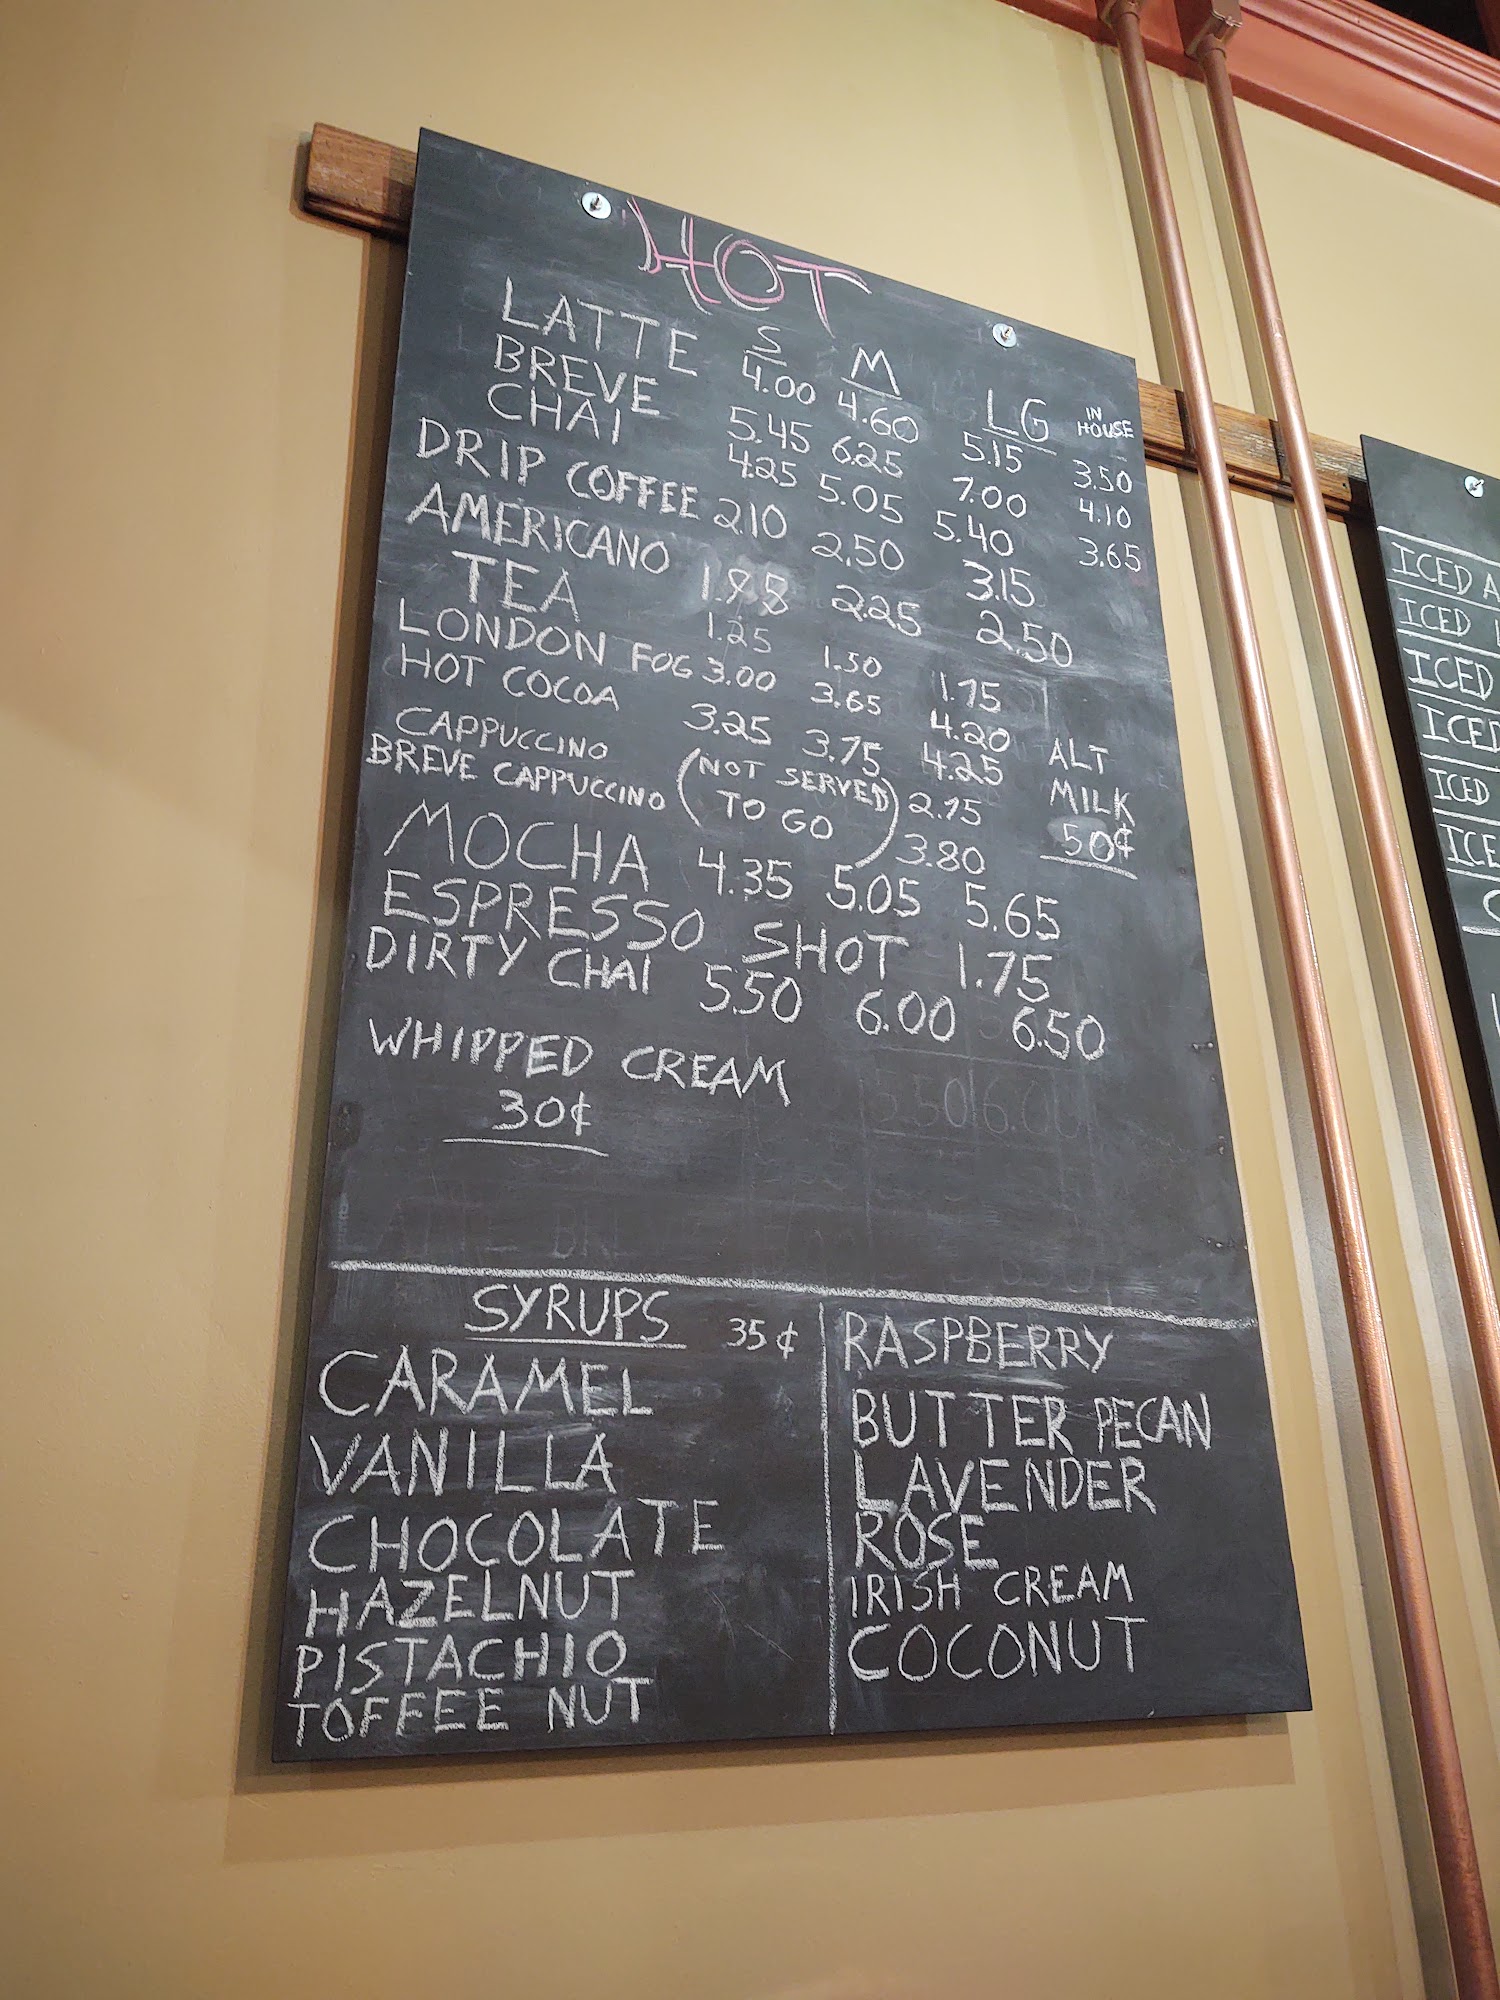 HOT
S M LG IN HOUSE
LATTE 4.00 4.60 5.15 3.50
BREVE 5.45 6.25 7.00 4.10
CHAI 4.25 5.05 5.40 3.65
DRIP COFFEE 2.10 2.50 3.15
AMERICANO 2.25 2.50
TEA 1.25 1.50 1.75
LONDON FOG 3.00 3.65 4.20
HOT COCOA 3.25 3.75 4.25
ALT
MILK
50¢
CAPPUCCINO (NOT SERVED 2.75
BREVE CAPPUCCINO TO GO) 3.80
MOCHA 4.35 5.05 5.65
ESPRESSO SHOT 1.75
DIRTY CHAI 5.50 6.00 6.50
WHIPPED CREAM
30¢
SYRUPS 35¢
CARAMEL
VANILLA
CHOCOLATE
HAZELNUT
PISTACHIO
TOFFEE NUT
RASPBERRY
BUTTER PECAN
LAVENDER
ROSE
IRISH CREAM
COCONUT
ICED
ICED
ICED
ICED
ICED